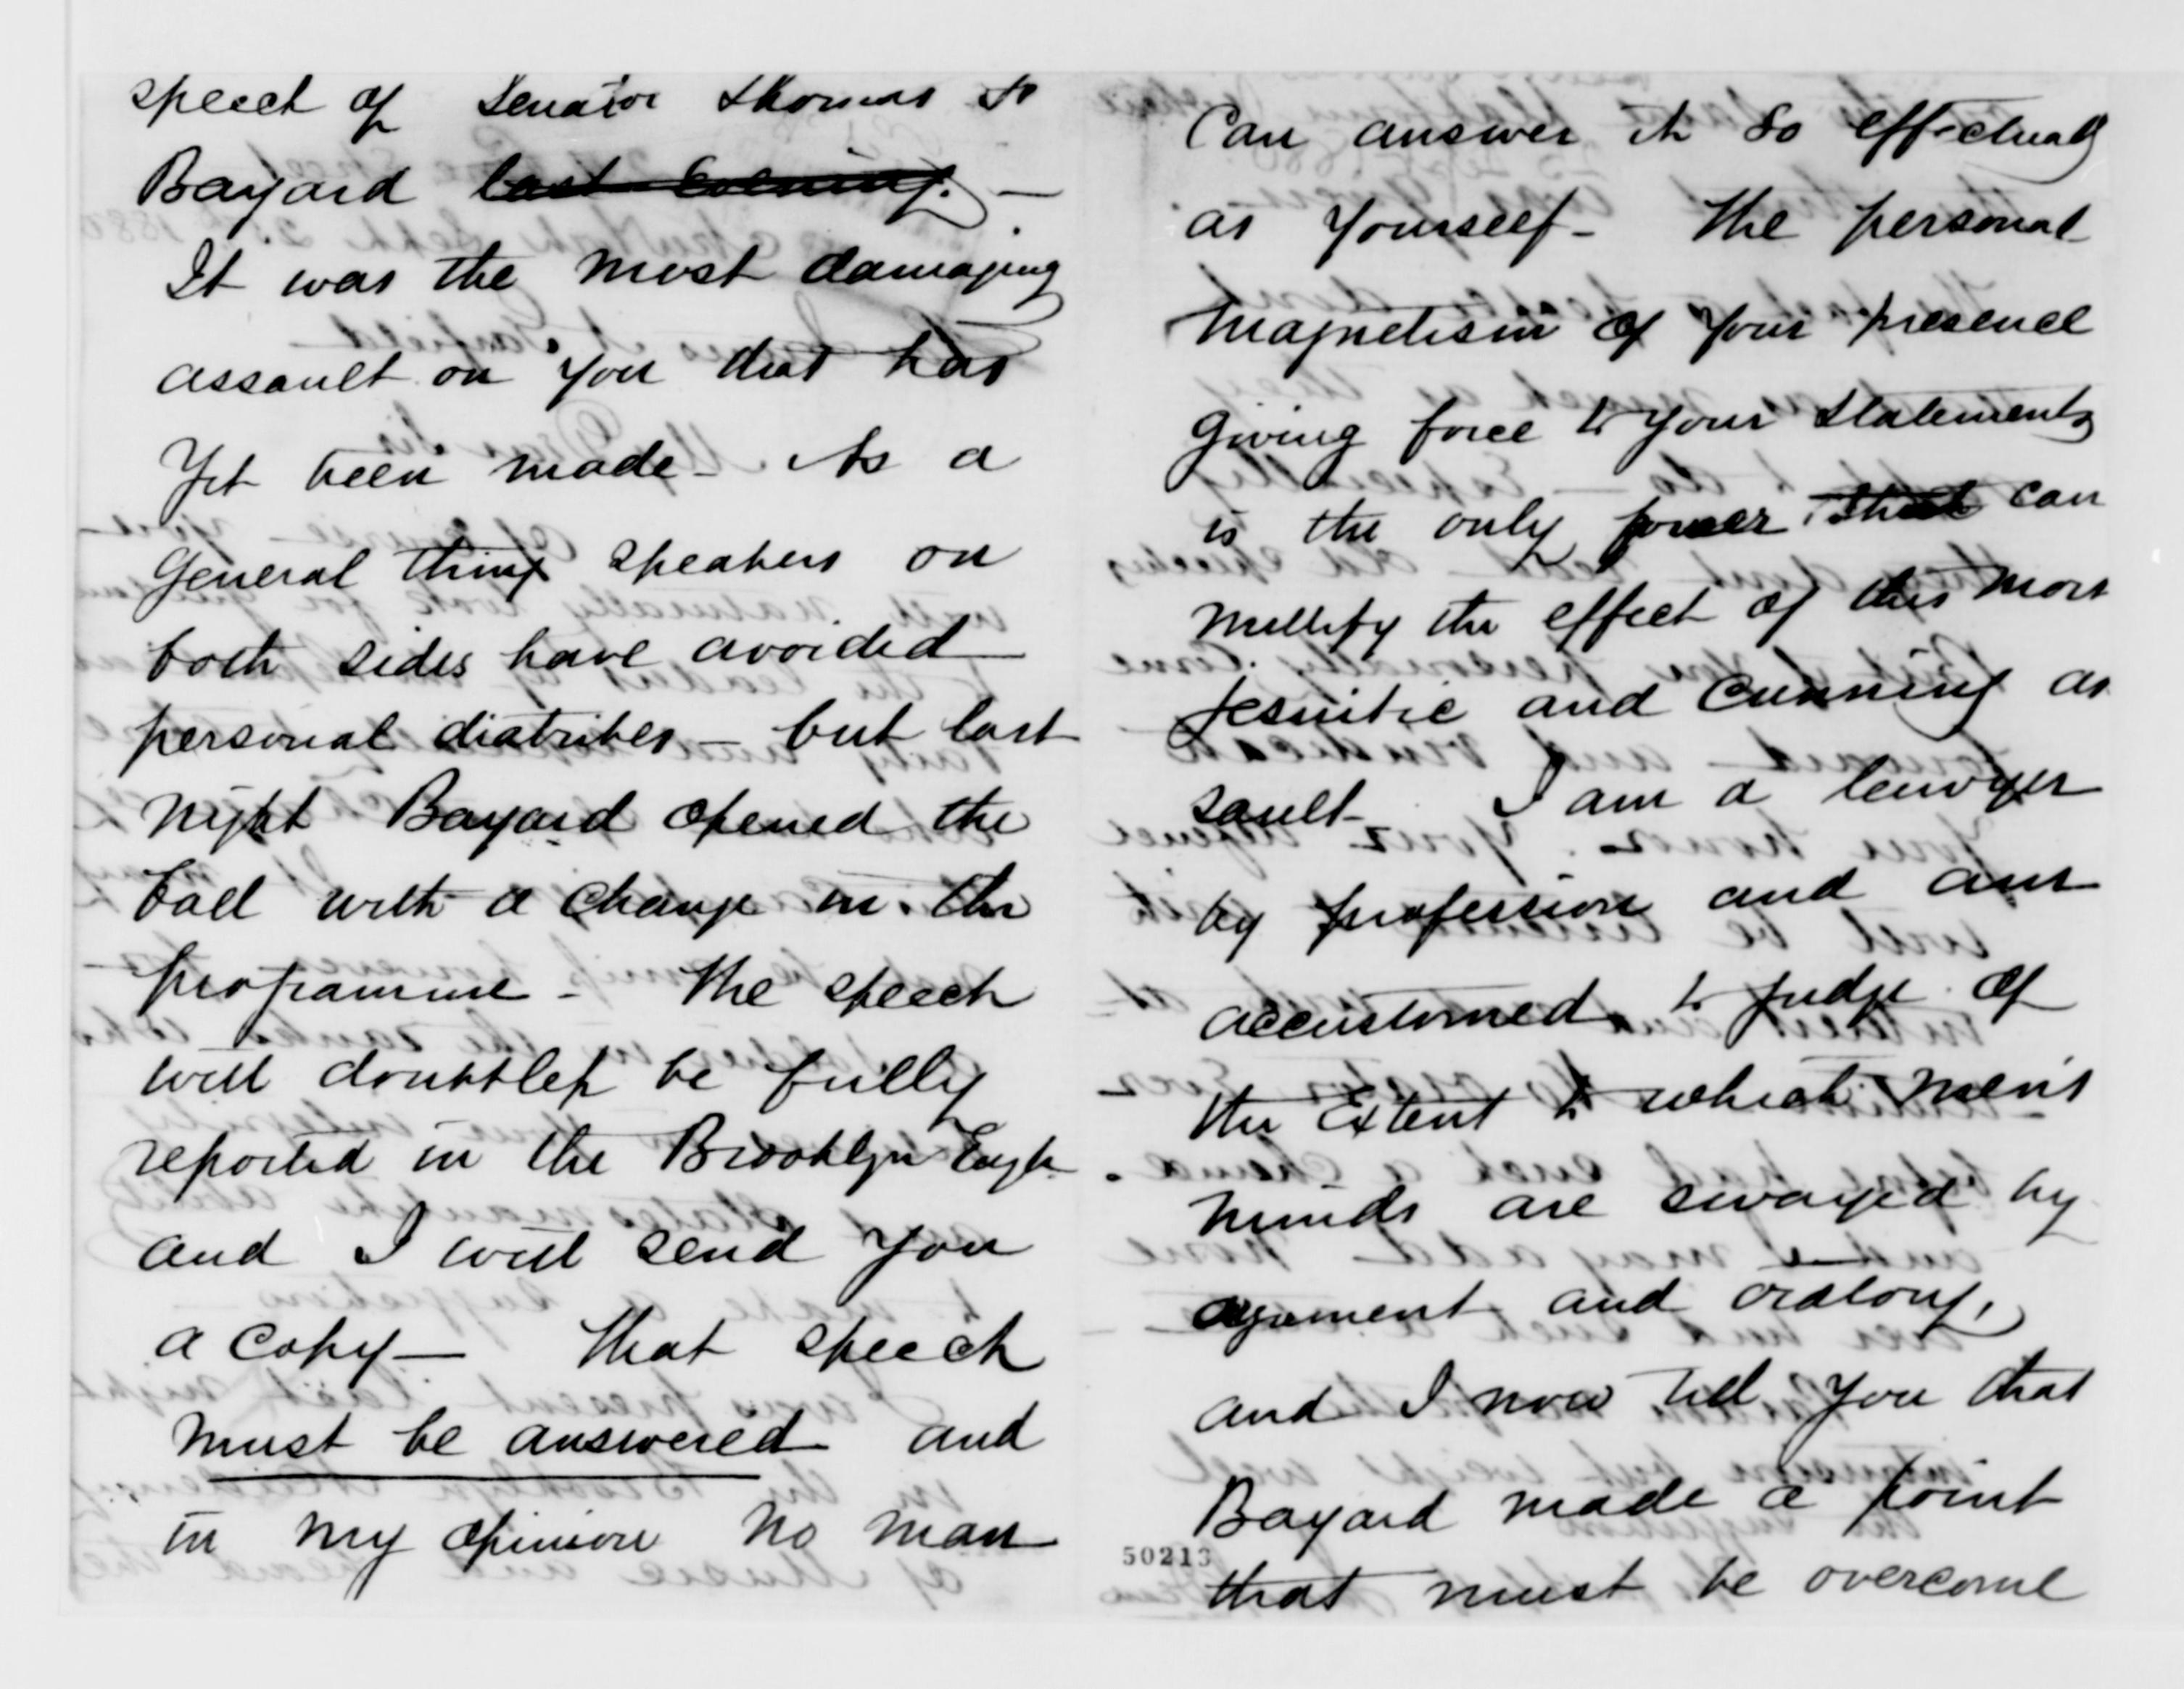 speech of Senator Thomas F
Bayard last evening. —
It was the most damaging
assault on you that has
Yet been made - As a
General thing speakers on
both sides have avoided
personal diatribes - but last
night Bayard opened the
ball with a change in the
programme - The speech
will doubtless be fully
reported in the Brooklyn Eagle
and I will send you
a copy — That speech
must be answered and
in my opinion no man
Can answer it so effectually
as yourself - The personal
magnetism of your presence
giving force to your statements
is the only power that can
mullify the effect of this most
jesuitic and cunning as
sault - I am a lawyer
by profession and am
accustomed to judge of
the Extent to which men's
minds are swayed by
agument and oratory,
and I now tell you that
Bayard made a point
that must be overcome
50213